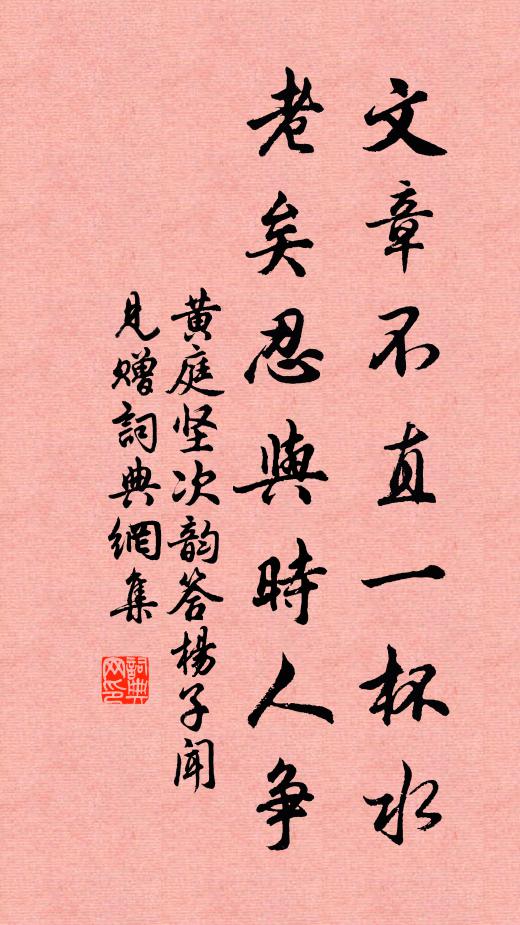 文章不直一杯水
老矣忍與時人争
黄庭坚次韵答楊子聞
見贈詞典網集
詞典網印